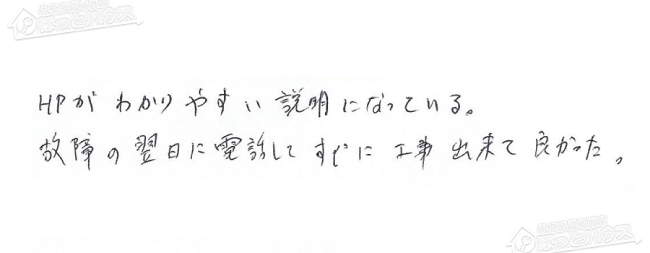 HPがわかりやすい説明になっている。
故障の翌日に電話してすぐに工事出来て良かった。